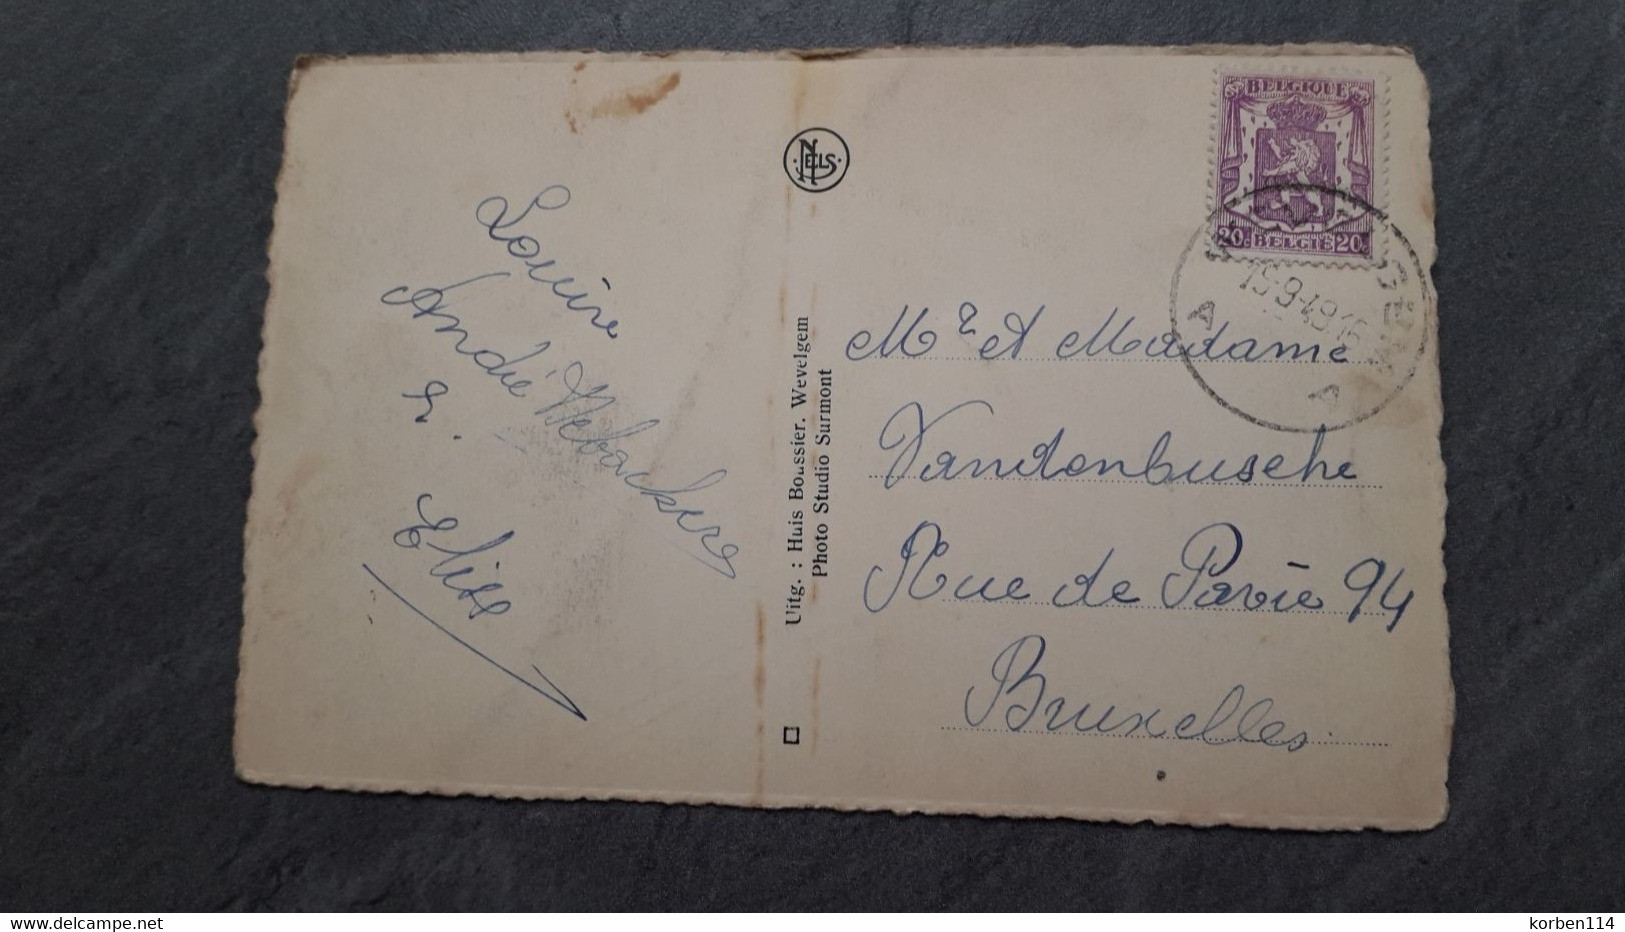 Louise
André Debackere
E.
Elise
NELS
Uitg. : Huis Boussier. Wevelgem
Photo Studio Surmont
BELGIQUE
20c BELGIË 20c
15-9-49 16
A A
Mr et Madame
Vandenbusche
Rue de Pavie 94
Bruxelles
delcampe.net
korben114